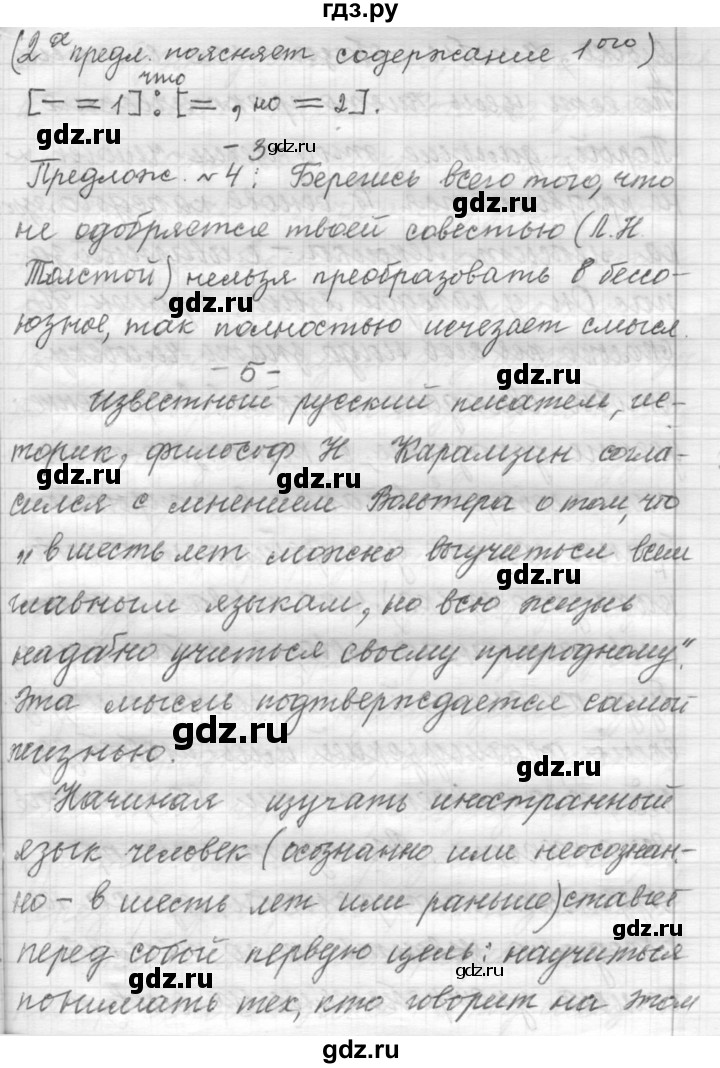 гдз.ру
(2ая предл. поясняет содержание 1ого)
что
[— = 1] : [= , но = 2].
gdz.ru
gdz.ru
- 3 -
gdz.ru
Предложс. №4: Берегись всего того, что
gdz.ru
не одобряется твоей совестью (Л.Н
Толстой) нельзя преобразовать в бессо-
gdz.ru
юзное, так полностью исчезает смысл.
- 5 -
gdz.ru
Известный русский писатель, ис-
торик, философ Н Карамзин согла-
gdz.ru
gdz.ru
сился с мнением Вольтера о том, что
„в шесть лет можно выучиться всем
gdz.ru
главным языкам, но всю жизнь
надобно учиться своему природному“.
Эта мысль подтверждается самой
gdz.ru
жизнью.
gdz.ru
Начиная изучать иностранный
язык человек (осознанно или неосознан-
но - в шесть лет или раньше) ставит
перед собой первую цель: научиться
gdz.ru
gdz.ru
gdz.ru
понимать тех, кто говорит на этом
gdz.ru